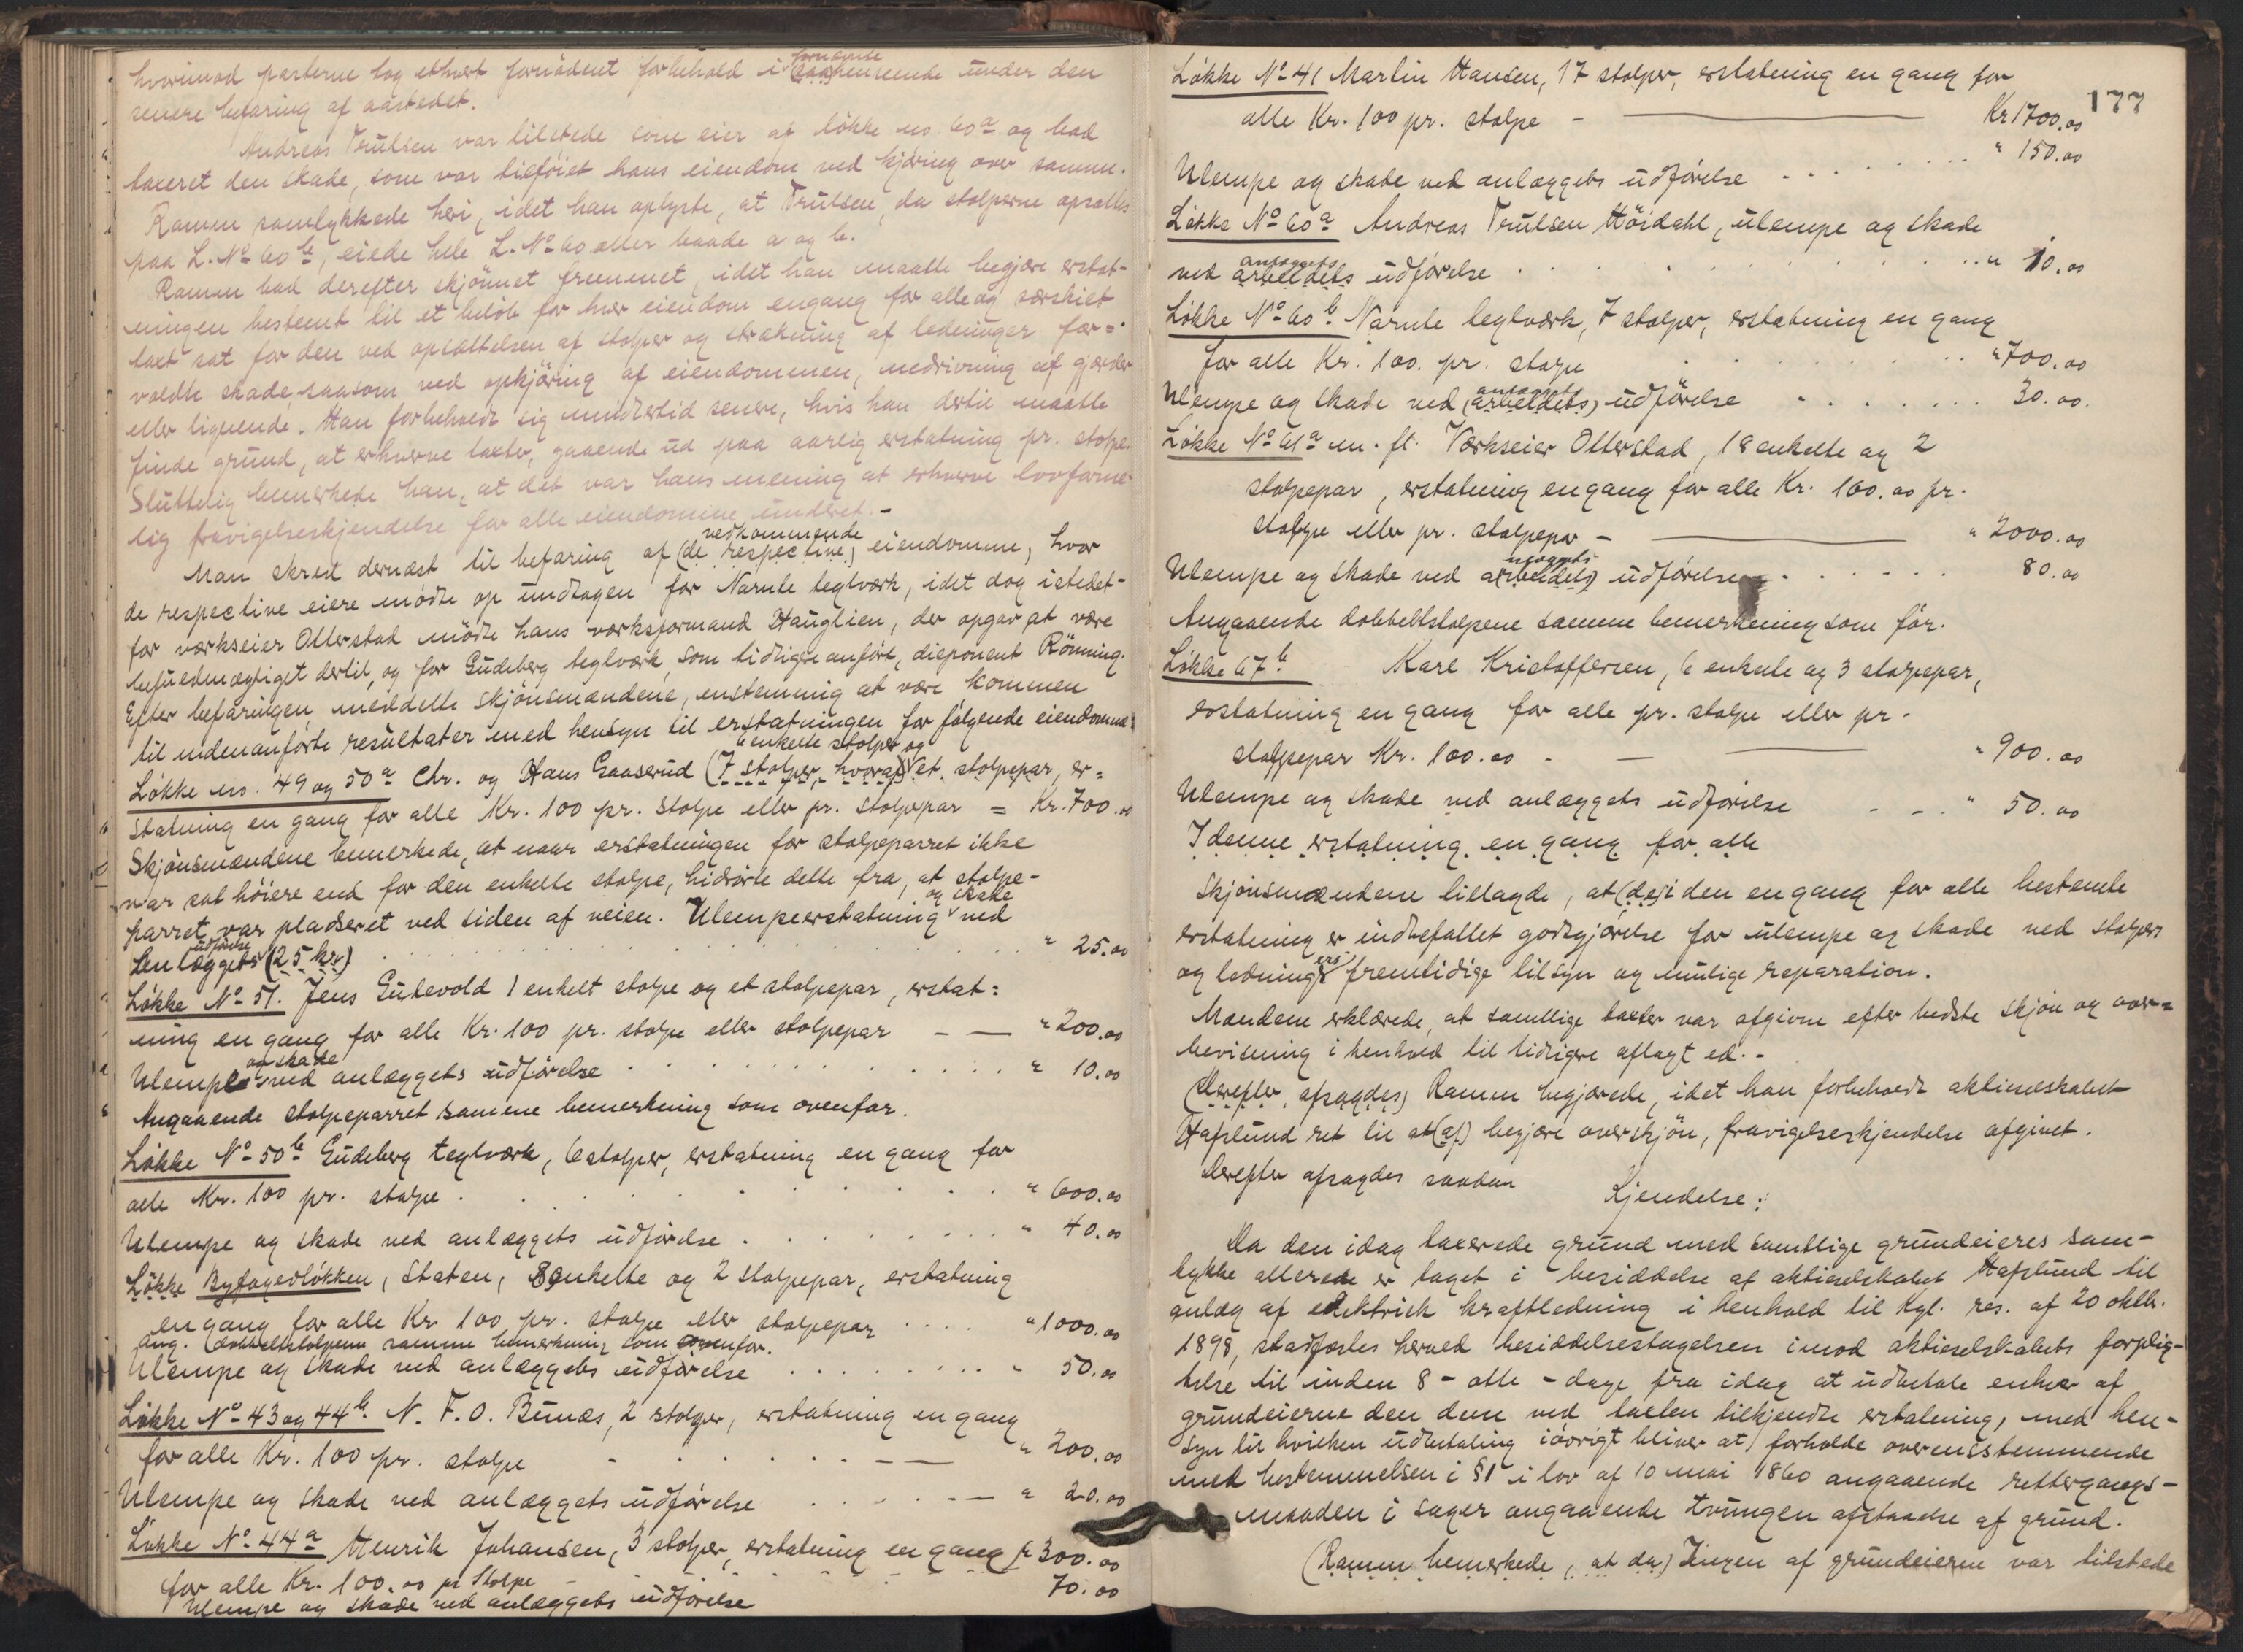 hvorimod parterne tog ethvert fornødent forbehold i fornævnte henseende under den
senere befaring af aastedet.
Andreas Trulsen var tilstede som eier af løkke no. 60a og bad
taxeret den skade, som var tilføiet hans eiendom ved kjøring over samme.
Ramm samtykkede heri, idet han oplyste, at Trulsen, da stolperne opsattes
paa L. No 60b, eiede hele L. No 60 eller baade a og b.
Ramm bad derefter skjønnet fremmet, idet han maatte begjære erstat-
ningen bestemt til et beløb for hver eiendom engang for alle og særskilt
taxt sat for den ved opsættelsen af stolper og strækning af ledninger for=
voldte skade, saasom ved opkjøring af eiendommen, nedrivning af gjærder
eller lignende. Han forbeholdt sig imidlertid senere, hvis han dertil maatte
finde grund, at erhverve taxter, gaaende ud paa aarlig erstatning pr. stolpe.
Sluttelig bemerkede han, at det var hans mening at erhverve lovforme-
lig fravigelseskjendelse for alle eiendomme undtet. -
Man skred dernæst til befaring af (de respective) vedkommende eiendomme, hvor
de respective eiere mødte op undtagen for Narnte teglværk, idet dog istedet-
for værkseier Otterstad mødte hans værksformand Hauglien, der opgav at være
befuldmægtiget dertil, og for Gudeberg teglværk, som tidligere anført, disponent Rönning.
Efter befaringen meddelte skjönsmændene, enstemmig at være kommen
til nedenanførte resultater med hensyn til erstatningen for følgende eiendomme:
Løkke no. 49 og 50a Chr. og Hans Gaaserud (7 stolper, hvoraf) 6 enkelte stolper og et stolpepar, er=
statning en gang for alle Kr. 100 pr. stolpe eller pr. stolpepar = Kr. 700.00
Skjönsmændene bemerkede, at naar erstatningen for stolpeparret ikke
var sat høiere end for den enkelte stolpe, hidrørte dette fra, at stolpe-
parret var pladseret ved siden af veien. Ulempeerstatning og skade ved
anlæggets udførelse (25 kr) " 25.00
Løkke No 51. Jens Gutevold 1 enkelt stolpe og et stolpepar, erstat=
ning en gang for alle Kr. 100 pr. stolpe eller stolpepar - — " 200.00
Ulempe og skade ved anlæggets udførelse " 10.00
Angaaende stolpeparret samme bemerkning som ovenfor.
Løkke No 50b Gudeberg teglværk, 6 stolper, erstatning en gang for
alle Kr. 100 pr. stolpe " 600.00
Ulempe og skade ved anlæggets udførelse " 40.00
Løkke Byfogedløkken, Staten, 8 enkelte og 2 stolpepar, erstatning
en gang for alle Kr 100 pr. stolpe eller stolpepar " 1000.00
Ang. dobbeltstolperne samme bemerkning som ovenfor.
Ulempe og skade ved anlæggets udførelse " 50.00
Løkke No 43 og 44b. N. F. O. Bunæs, 2 stolper, erstatning en gang
for alle Kr. 100 pr. stolpe " 200.00
Ulempe og skade ved anlæggets udførelse " 20.00
Løkke No 44a Henrik Johansen, 3 stolper, erstatning en gang " 300.00
for alle Kr. 100.00 pr Stolpe
Ulempe og skade ved anlæggets udførelse 70.00
177
Løkke No 41 Martin Hansen, 17 stolper, erstatning en gang for
alle Kr. 100 pr. stolpe - — Kr 1700.00
Ulempe og skade ved anlæggets udførelse " 150.00
Løkke No 60a Andreas Trulsen Höidahl, ulempe og skade
ved arbeidets anlæggets udførelse " 10.00
Løkke No 60b Narnte teglværk, 7 stolper, erstatning en gang
for alle Kr. 100. pr. stolpe " 700.00
Ulempe og skade ved (arbeidets) anlæggets udførelse 30.00.
Løkke No 61a m. fl. Værkseier Otterstad, 18 enkelte og 2
stolpepar, erstatning engang for alle Kr. 100.00 pr.
stolpe eller pr. stolpepar - — " 2000.00
Ulempe og skade ved a(rbeidets) nlæggets udførelse 80.00
Angaaende dobbeltstolpene samme bemerkning som før.
Løkke 67b Karl Kristoffersen, 6 enkelte og 3 stolpepar,
erstatning en gang for alle pr. stolpe eller pr.
stolpepar Kr. 100.00 - — " 900.00
Ulempe og skade ved anlæggets udførelse - - " 50.00
I denne erstatning en gang for alle
Skjønsmændene tillagde, at (de) i den en gang for alle bestemte
erstatning er indbefattet godtgjørelse for ulempe og skade ved stolpers
og ledningers fremtidige tilsyn og mulige reparation.
Mændene erklærede, at samtlige taxter var afgivne efter bedste skjøn og over=
bevisning i henhold til tidligere aflagt ed. -
(Derefter afsagdes) Ramm begjærede, idet han forbeholdt aktieselskabet
Hafslund ret til at (af) begjære overskjön, fravigelseskjendelse afgivet.
Derefter afsagdes saadan
Kjendelse:
Da den idag taxerede grund med samtlige grundeieres sam-
tykke allerede er taget i besiddelse af aktieselskabet Hafslund til
anlæg af elektrisk kraftledning i henhold til Kgl. res. af 20 oktb.
1898, stadfæstes herved besiddelsestagelsen imod aktieselskabets forplig-
telse til inden 8 - otte - dage fra idag at udbetale enhver af
grundeierne den dem ved taxten tilkjendte erstatning, med hen-
syn til hvilken udbetaling iøvrigt bliver at forholde overensstemmende
med bestemmelsen i § 1 i lov af 10 mai 1860 angaaende rettergangs-
maaden i sager angaaende tvungen afstaaelse af grund.
(Ramm bemerkede, at da) Ingen af grundeierne var tilstede